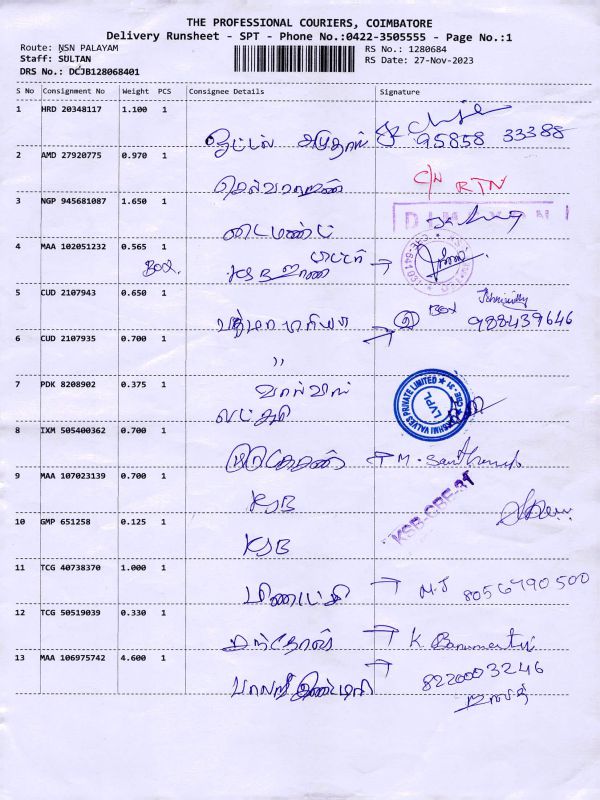 THE PROFESSIONAL COURIERS, COIMBATORE
Delivery Runsheet - SPT - Phone No.:0422-3505555 - Page No.:1
Route: NSN PALAYAM
RS No.: 1280684
Staff: SULTAN
RS Date: 27-Nov-2023
DRS No.: DCJB128068401
S No Consignment No Weight PCS Consignee Details Signature
1 HRD 20348117 1.100 1
95858 33388
2 AMD 27920775 0.970 1
செல்வராஜன்
C/N RTN
3 NGP 945681087 1.650 1
டைமண்ட்
4 MAA 102051232 0.565 1
Box. KSB
5 CUD 2107943 0.650 1
பத்மா ஏரியா
② Box
988439646
6 CUD 2107935 0.700 1
"
7 PDK 8208902 0.375 1
வால்வ்
லட்சுமி
VALVES PRIVATE LIMITED
LVPL
8 IXM 505400362 0.700 1
முருகேசன்
9 MAA 107023139 0.700 1
KSB
KSB-GBE-31
10 GMP 651258 0.125 1
KSB
11 TCG 40738370 1.000 1
மீனாட்சி
M.J 8056790500
12 TCG 50519039 0.330 1
சந்தோஷ்
K
13 MAA 106975742 4.600 1
8220003246